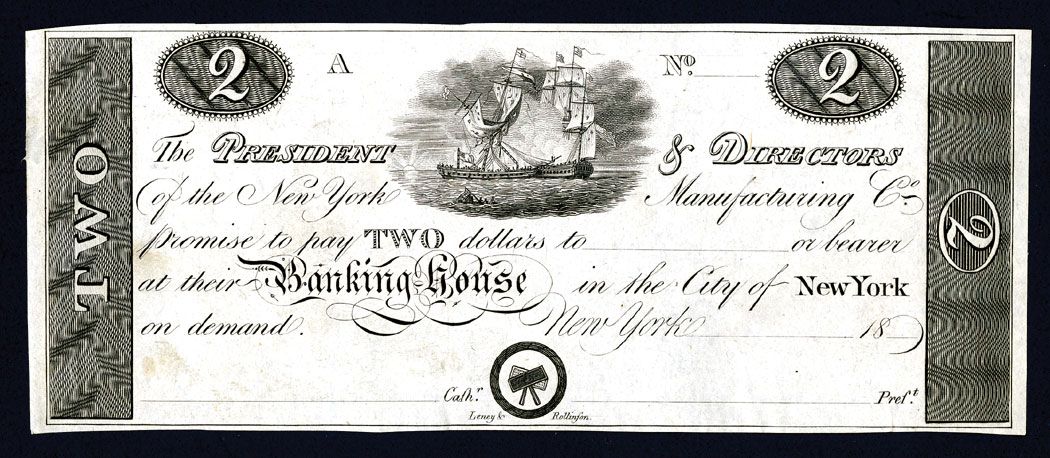 2 A No. 2
The PRESIDENT & DIRECTORS
of the New York Manufacturing Co.
promise to pay TWO dollars to or bearer
at their Banking House in the City of New York
on demand. New York 18
Cashr. Prest.
Leney & Rollinson.
TWO
2